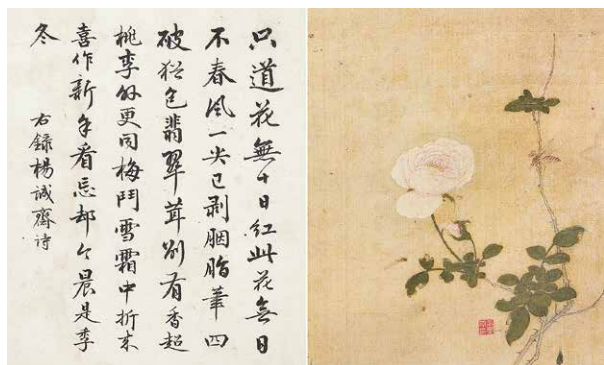 只道花無十日紅此花無日
不春風一尖已剥胭脂筆四
破猶包翡翠茸别有香超
桃李外更同梅鬥雪霜中折来
喜作新年看忘却今晨是季
冬
右録楊誠齋詩